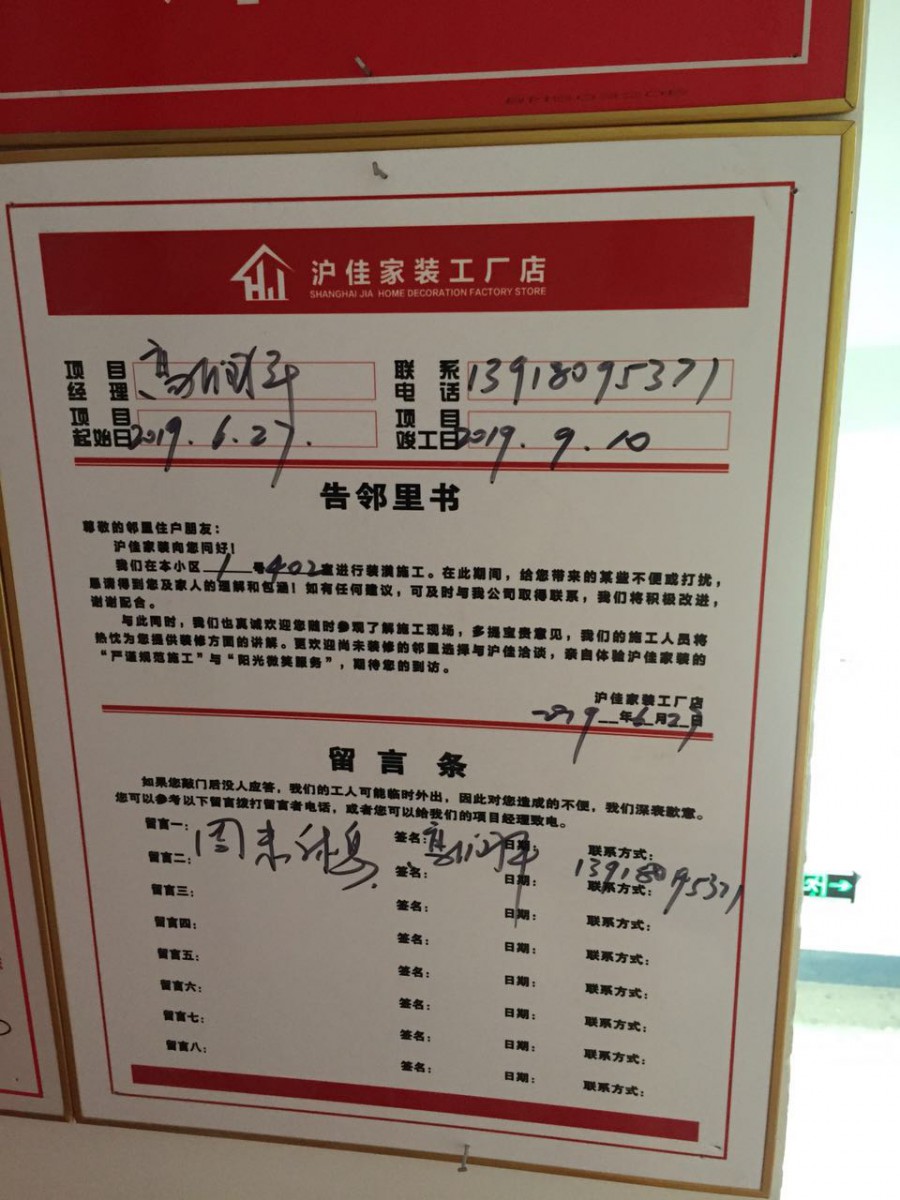 沪佳家装工厂店
SHANGHAI JIA HOME DECORATION FACTORY STORE
项目经理 高 联系电话 13918095371
项目起始日 2019.6.27. 项目竣工日 2019.9.10
告邻里书
尊敬的邻里住户朋友：
沪佳家装向您问好！
我们在本小区1号402室进行装潢施工。在此期间，给您带来的某些不便或打扰，
恳请得到您及家人的理解和包涵！如有任何建议，可及时与我公司取得联系，我们将积极改进，
谢谢配合。
与此同时，我们也真诚欢迎您随时参观了解施工现场，多提宝贵意见，我们的施工人员将
热忱为您提供装修方面的讲解。更欢迎尚未装修的邻里选择与沪佳洽谈，亲自体验沪佳家装的
“严谨规范施工”与“阳光微笑服务”，期待您的到访。
沪佳家装工厂店
2019年6月27日
留言条
如果您敲门后没人应答，我们的工人可能临时外出，因此对您造成的不便，我们深表歉意。
您可以参考以下留言拨打留言者电话，或者您可以给我们的项目经理致电。
留言一：周末休息 签名：高 日期： 联系方式：13918095371
留言二： 签名： 日期： 联系方式：
留言三： 签名： 日期： 联系方式：
留言四： 签名： 日期： 联系方式：
留言五： 签名： 日期： 联系方式：
留言六： 签名： 日期： 联系方式：
留言七： 签名： 日期： 联系方式：
留言八： 签名： 日期： 联系方式：